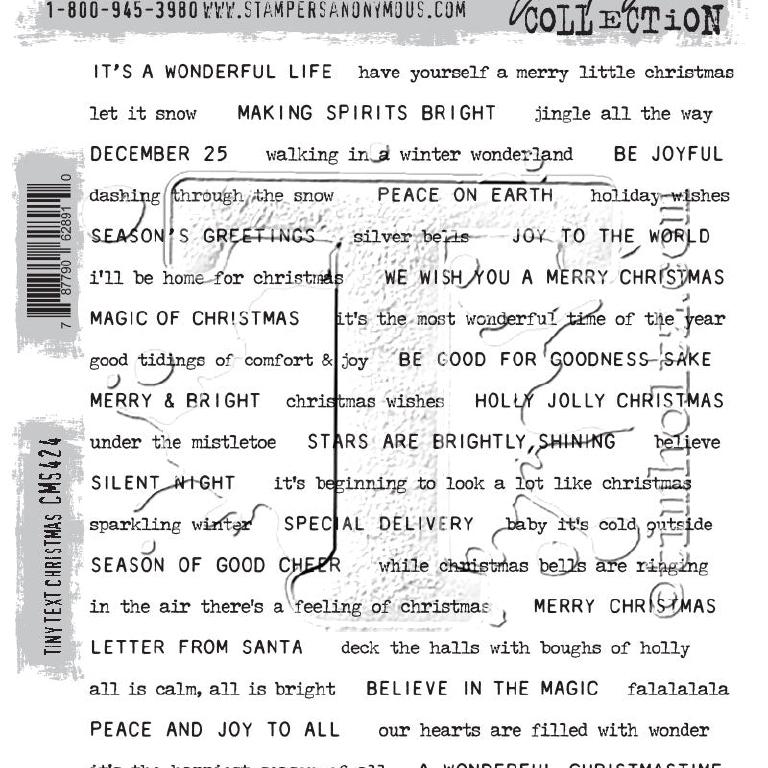 1-800-945-3980 WWW.STAMPERSANONYMOUS.COM
COLLECTiON
IT'S A WONDERFUL LIFE have yourself a merry little christmas
let it snow MAKING SPIRITS BRIGHT jingle all the way
DECEMBER 25 walking in a winter wonderland BE JOYFUL
dashing through the snow PEACE ON EARTH holiday wishes
SEASON'S GREETINGS silver bells JOY TO THE WORLD
i'll be home for christmas WE WISH YOU A MERRY CHRISTMAS
MAGIC OF CHRISTMAS it's the most wonderful time of the year
good tidings of comfort & joy BE GOOD FOR GOODNESS SAKE
MERRY & BRIGHT christmas wishes HOLLY JOLLY CHRISTMAS
under the mistletoe STARS ARE BRIGHTLY SHINING believe
SILENT NIGHT it's beginning to look a lot like christmas
sparkling winter SPECIAL DELIVERY baby it's cold outside
SEASON OF GOOD CHEER while christmas bells are ringing
in the air there's a feeling of christmas MERRY CHRISTMAS
LETTER FROM SANTA deck the halls with boughs of holly
all is calm, all is bright BELIEVE IN THE MAGIC falalalala
PEACE AND JOY TO ALL our hearts are filled with wonder
it's the happiest season of all A WONDERFUL CHRISTMASTIME
7 87790 62891 0
TINY TEXT CHRISTMAS CMS424